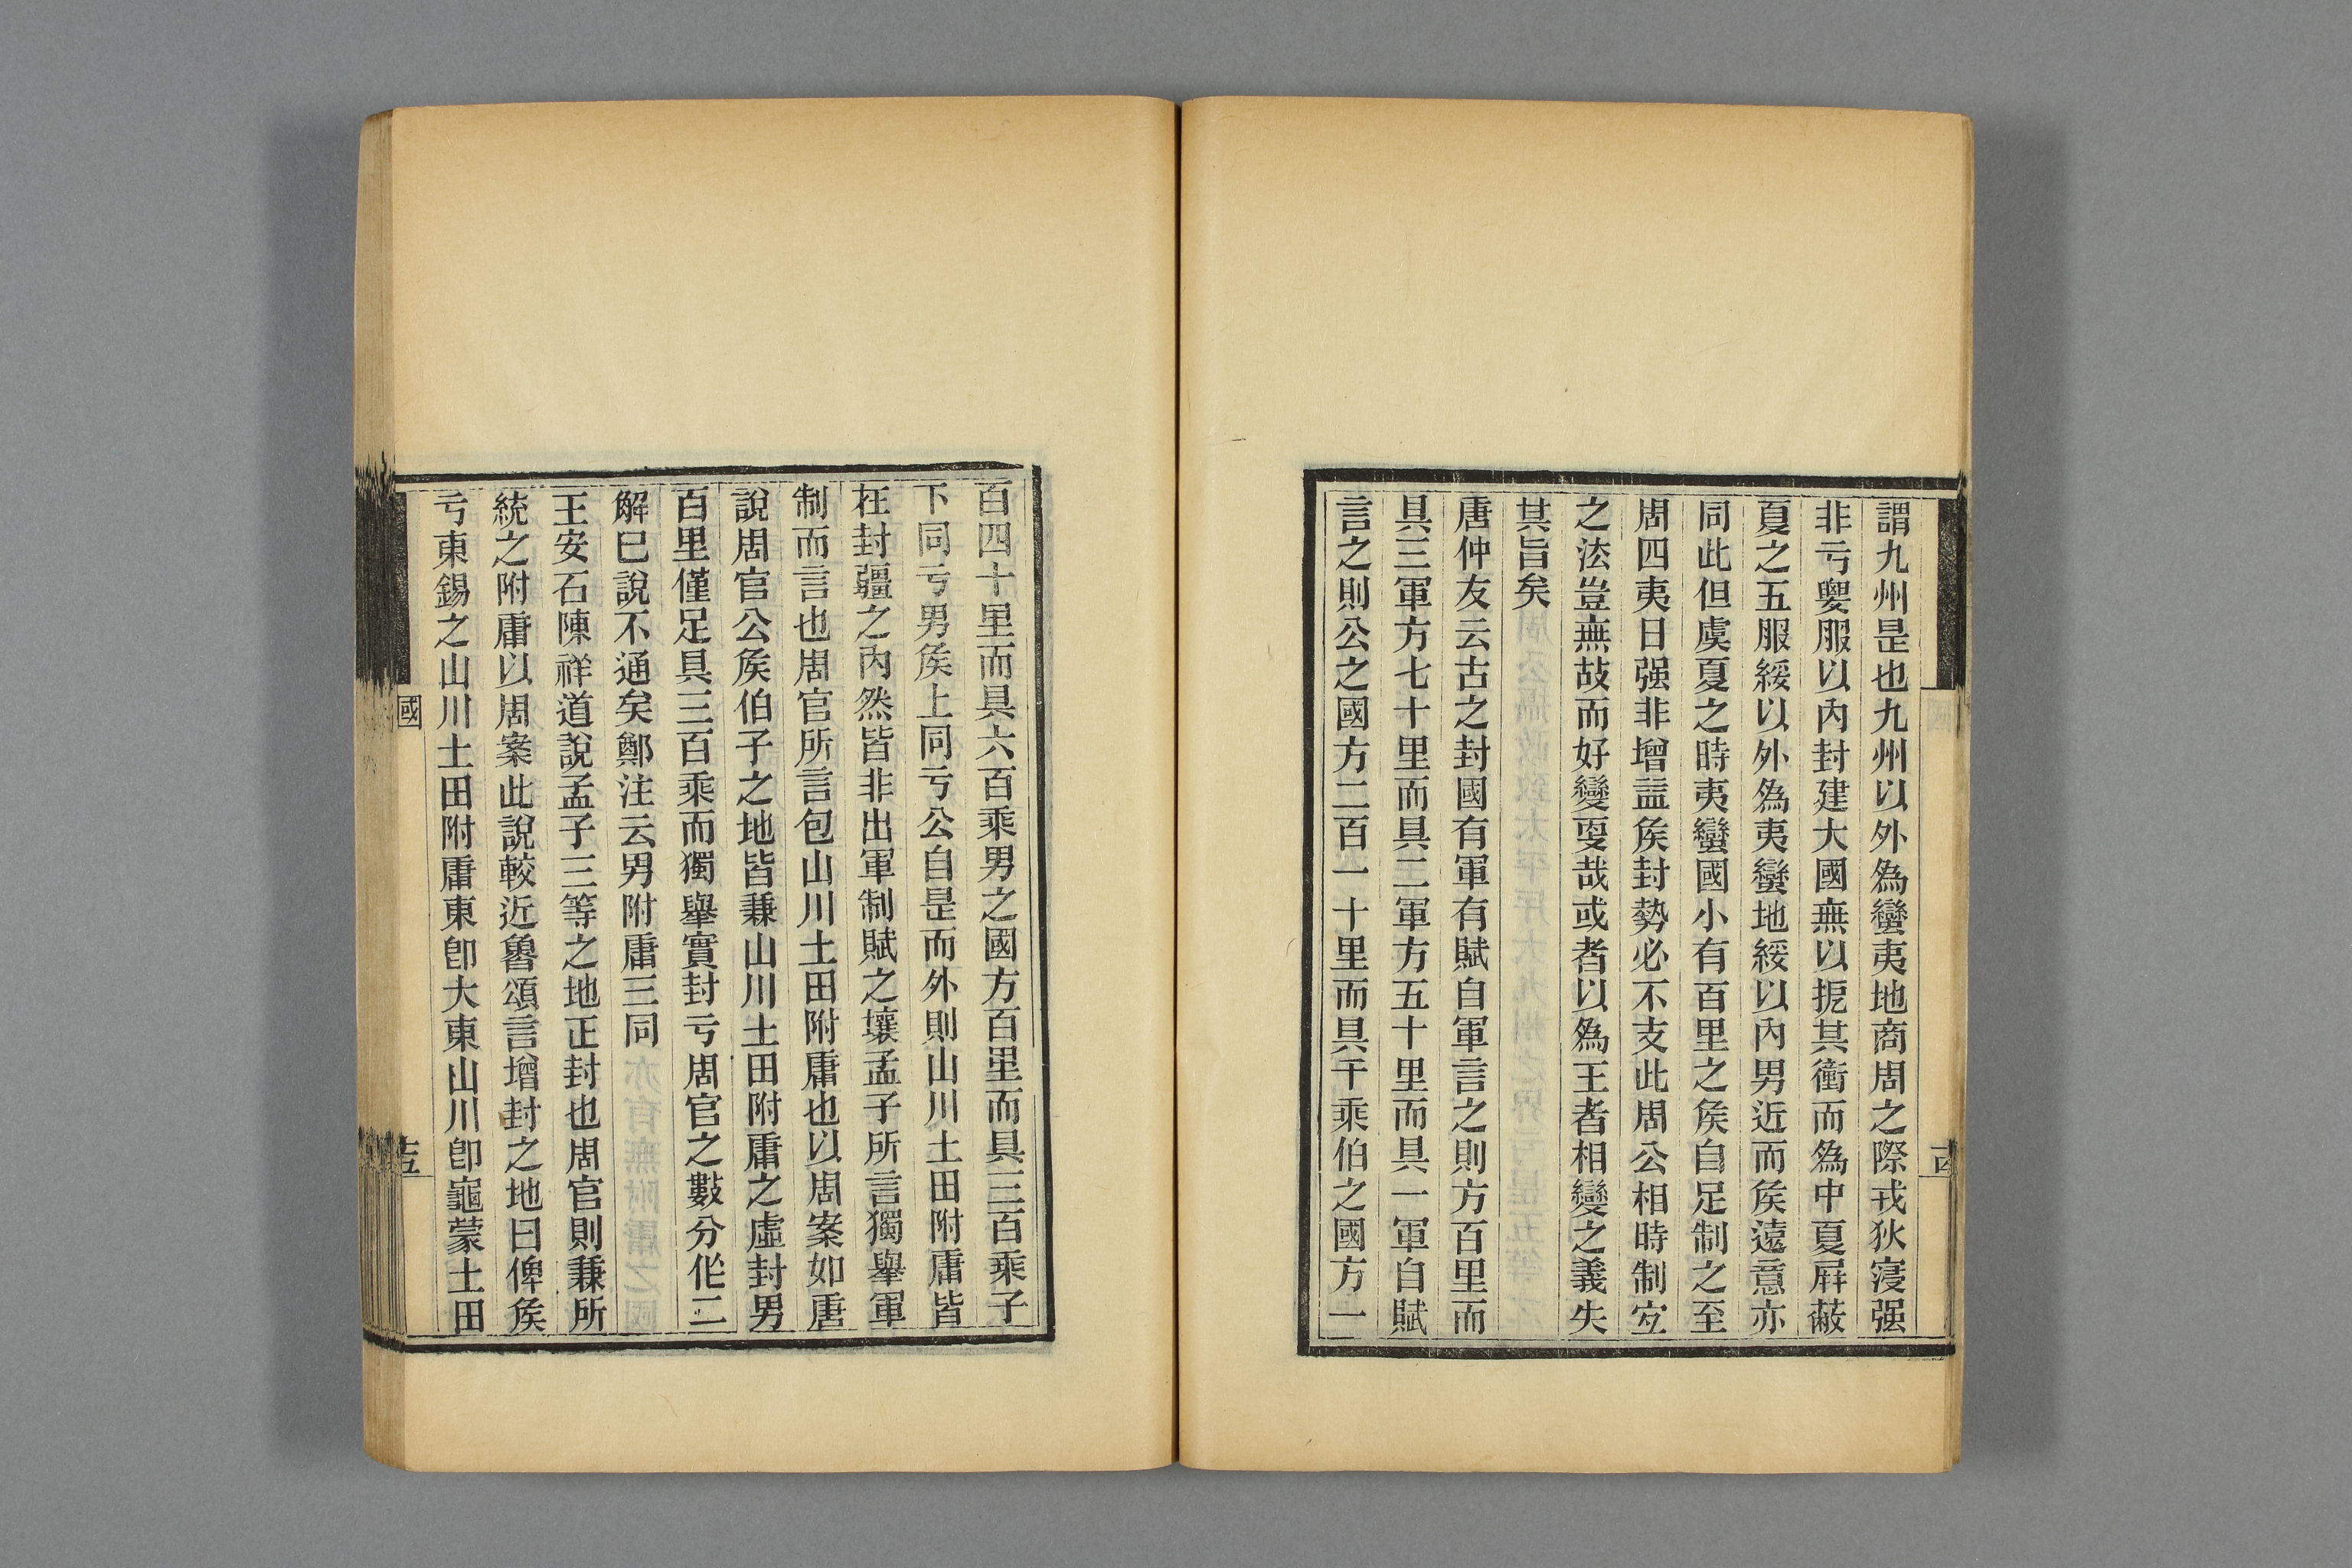 謂九州是也九州以外為蠻夷地商周之際戎狄寖强
非亏㜝服以內封建大國無以扼其衝而為中夏屛蔽
夏之五服綏以外為夷蠻地綏以內男近而矦遠意亦
同此但虞夏之時夷蠻國小有百里之矦自足制之至
周四夷日强非增益矦封勢必不支此周公相時制宐
之法豈無故而好變㪅哉或者以為王者相變之義失
其旨矣
唐仲友云古之封國有軍有賦自軍言之則方百里而
具三軍方七十里而具二軍方五十里而具一軍自賦
言之則公之國方二百一十里而具千乘伯之國方一
百四十里而具六百乘男之國方百里而具三百乘子
下同亏男矦上同亏公自是而外則山川土田附庸皆
在封疆之內然皆非出軍制賦之壤孟子所言獨舉軍
制而言也周官所言包山川土田附庸也以周案如唐
說周官公矦伯子之地皆兼山川土田附庸之虛封男
百里僅足具三百乘而獨舉實封亏周官之數分作二
解巳說不通矣鄭注云男附庸三同
王安石陳祥道說孟子三等之地正封也周官則兼所
統之附庸以周案此說較近魯頌言增封之地曰俾矦
亏東錫之山川土田附庸東卽大東山川卽龜蒙土田
國